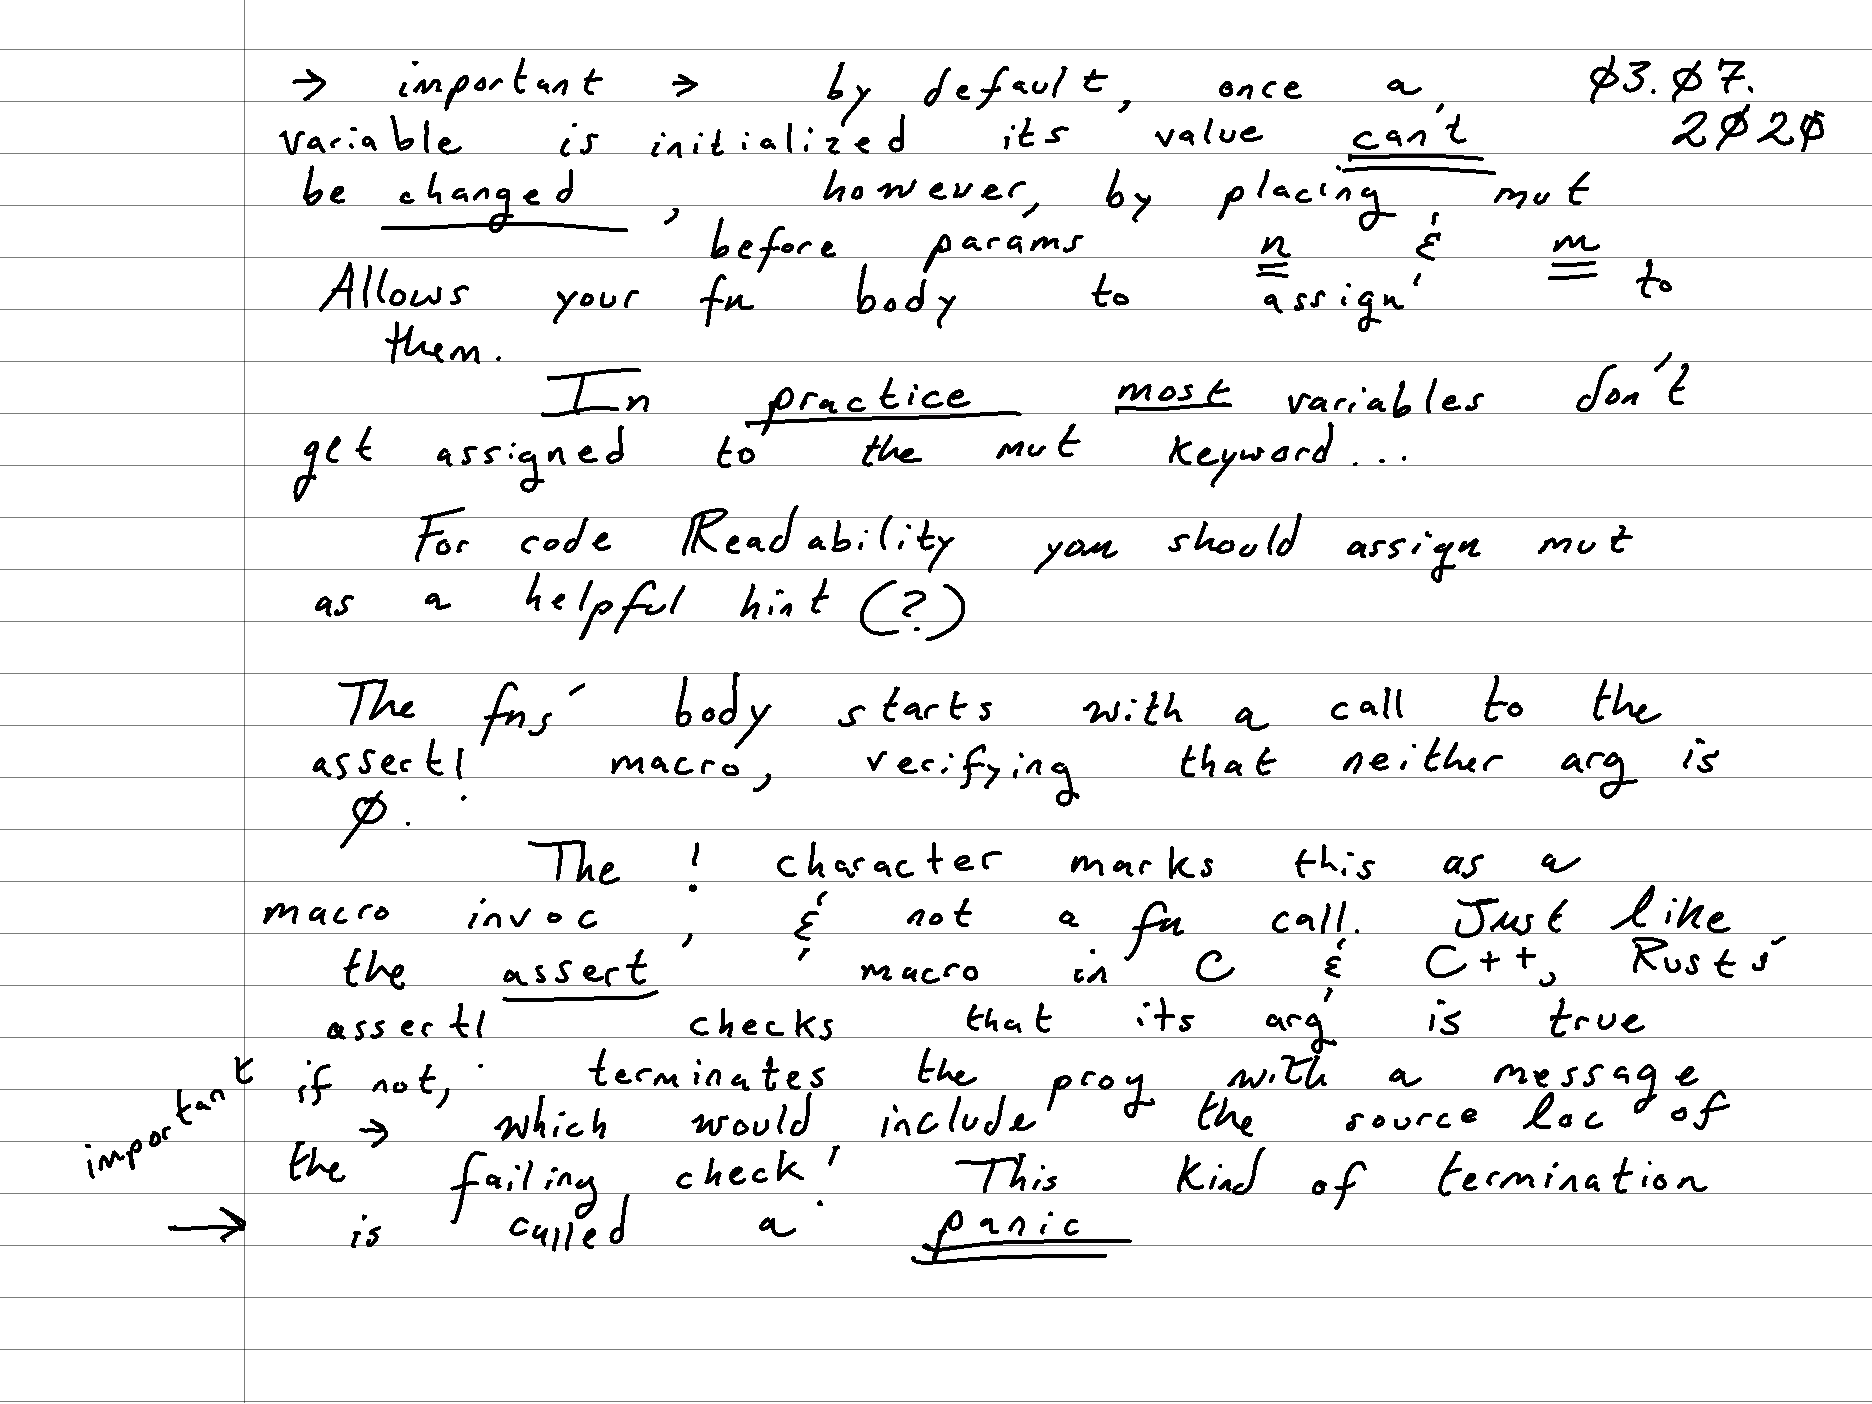 → important → by default, once a 03.07.
variable is initialized its value can't 2020
be changed, however, by placing mut
before params n & m
Allows your fn body to assign to
them.
In practice most variables don't
get assigned to the mut keyword...
For code Readability you should assign mut
as a helpful hint (?)
The fns' body starts with a call to the
assert! macro, verifying that neither arg is
0.
The ! character marks this as a
macro invoc, & not a fn call. Just like
the assert macro in C & C++, Rusts'
assert! checks that its arg is true
important if not, terminates the prog with a message
→ which would include the source loc of
the failing check! This kind of termination
→ is called a panic